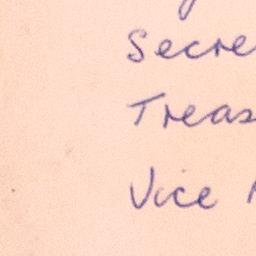 Secre
Treas
Vice